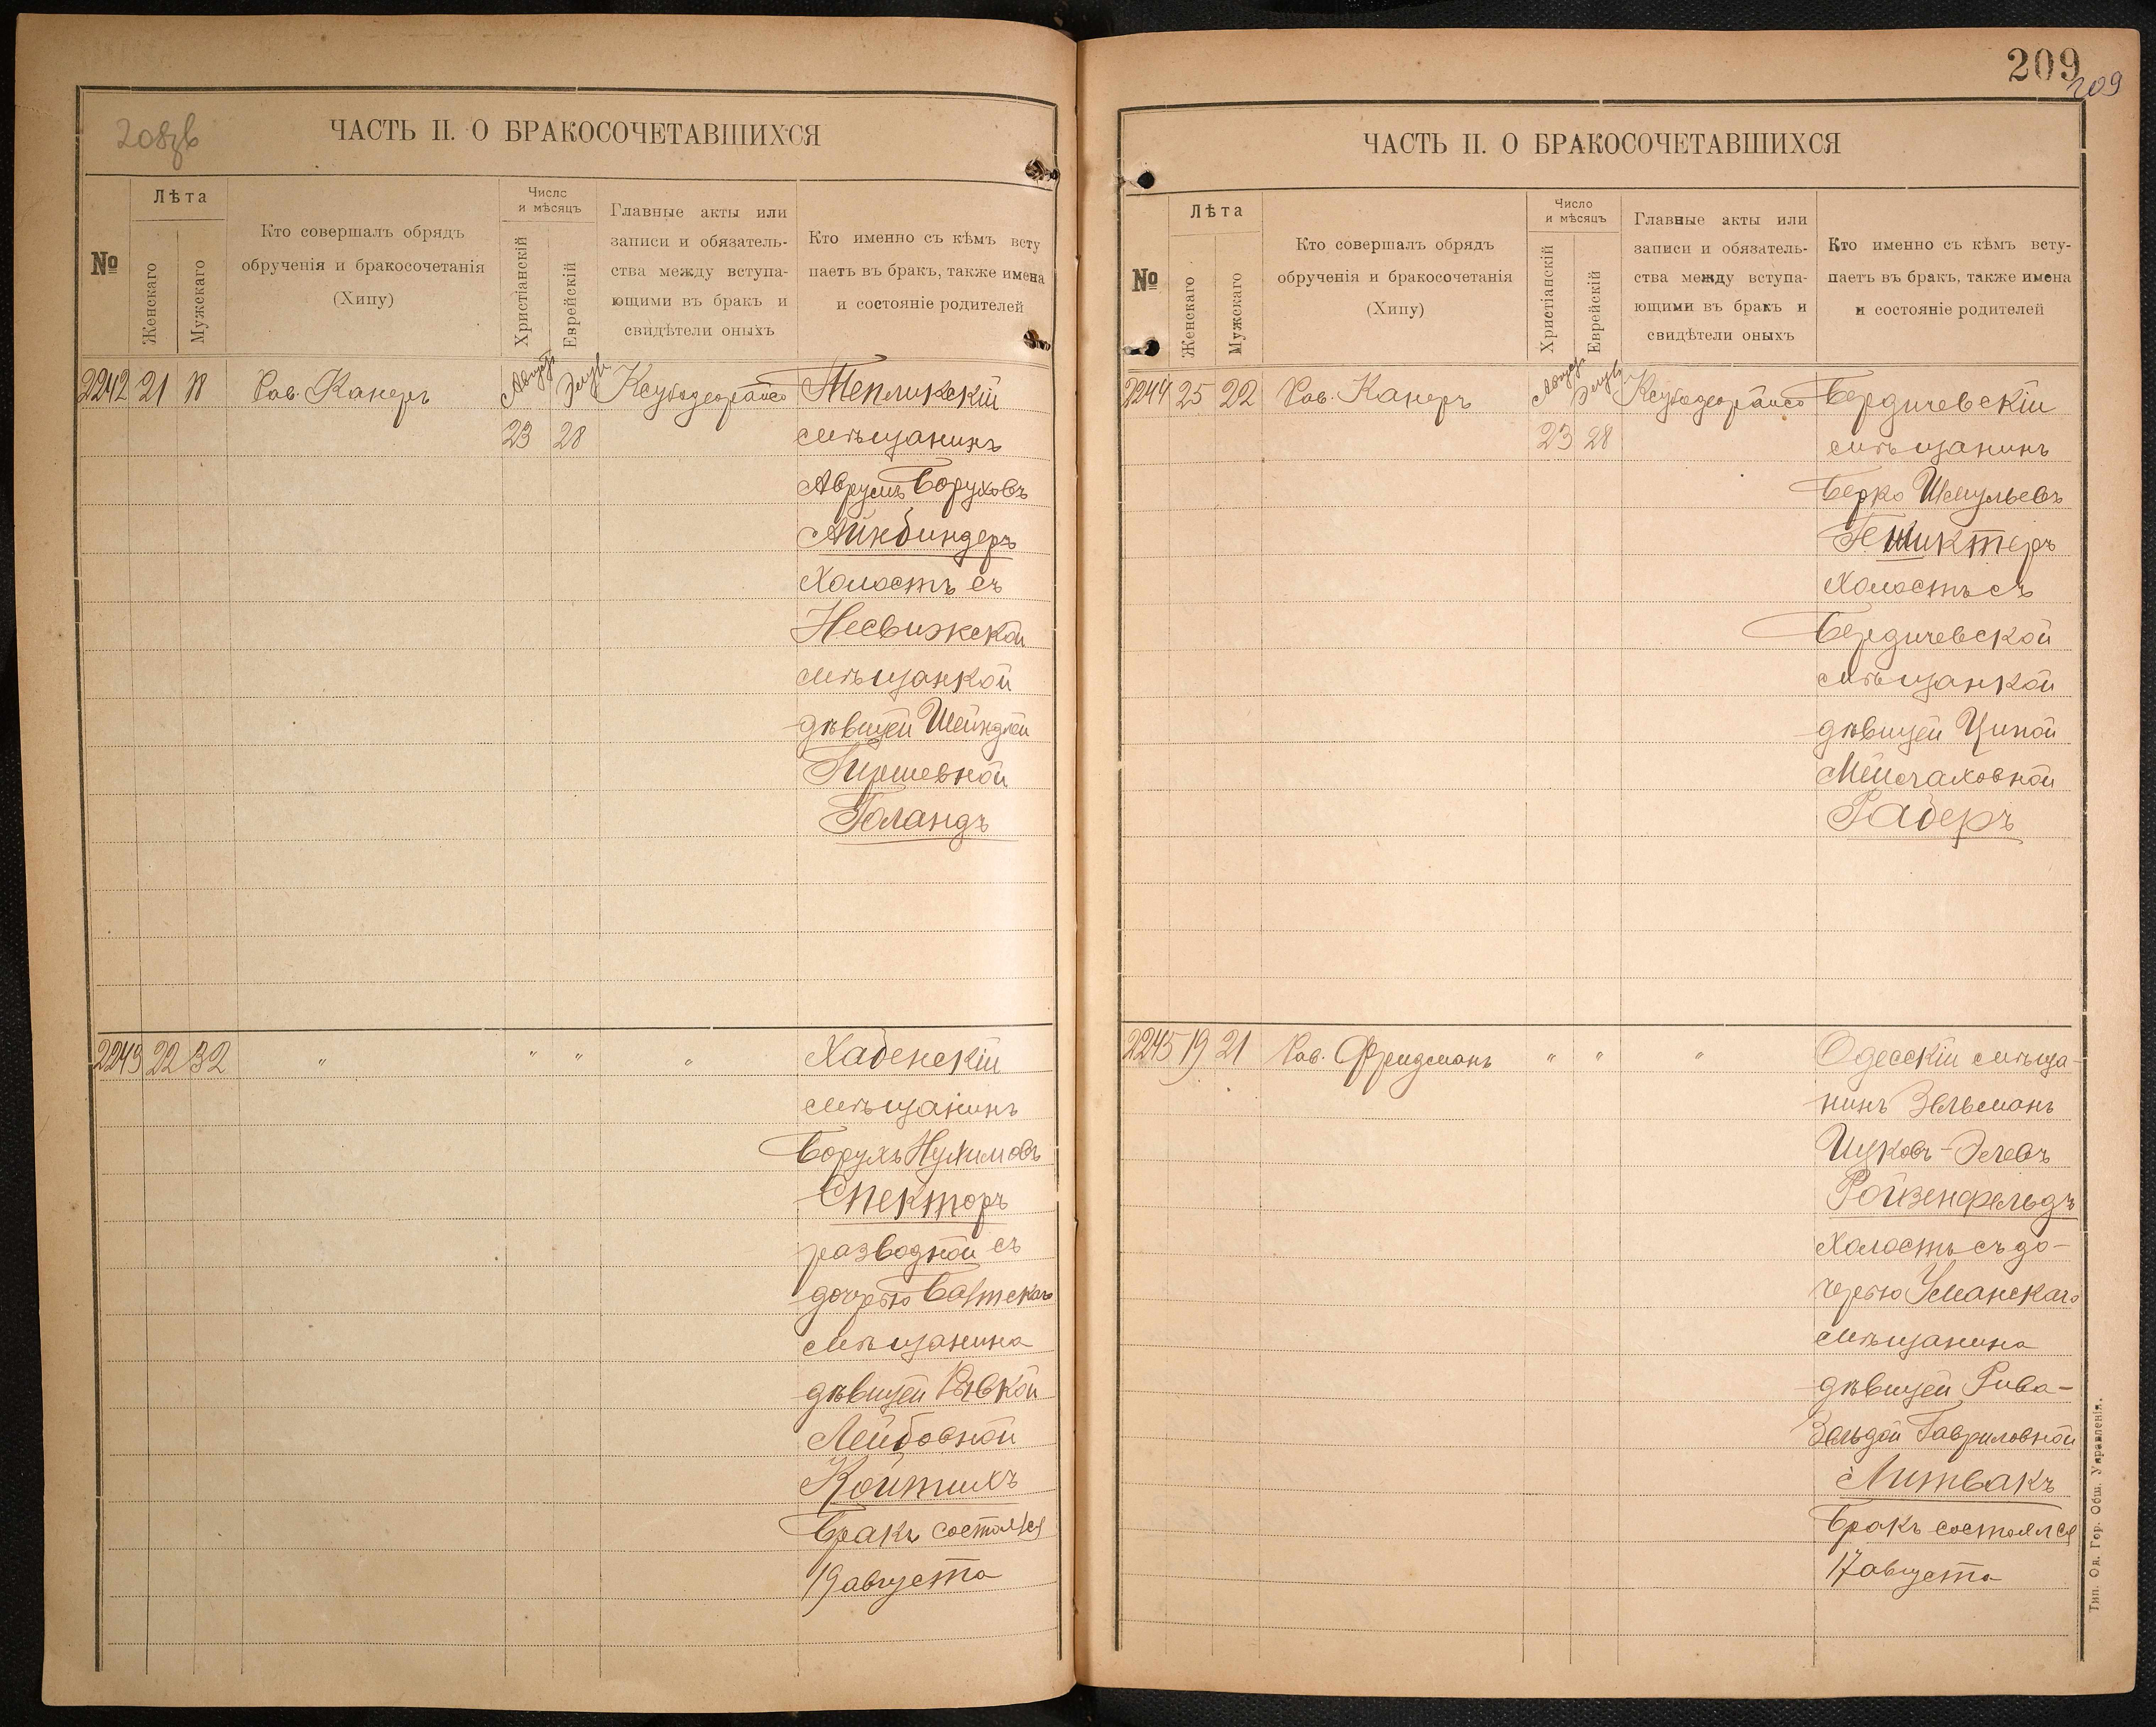 208зв
ЧАСТЬ II. О БРАКОСОЧЕТАВШИХСЯ
№
Лѣта
Женскаго
Мужскаго
Кто совершалъ обрядъ
обрученія и бракосочетанія
(Хипу)
Число
и мѣсяцъ
Христіанскій
Еврейскій
Главные акты или
записи и обязатель-
ства между вступа-
ющими въ бракъ и
свидѣтели оныхъ
Кто именно съ кѣмъ всту
паетъ въ бракъ, также имена
и состояніе родителей
2242 21 18 Рав. Канеръ Августъ Элулъ Тепликскій
23 28 мѣщанинъ
Аврумъ Боруховъ
Айнбиндеръ
холостъ съ
Несвижской
мѣщанкой
дѣвицей Шейндлей
Гиршевной
Голандъ
2243 22 32 " " " " Хабенскій
мѣщанинъ
Борухъ Нухимовъ
Спекторъ
разводной съ
дочерью Балтскаго
мѣщанина
дѣвицей Ривкой
Лейбовной
Койтихъ
Бракъ состоялся
19 августа
209
209
ЧАСТЬ II. О БРАКОСОЧЕТАВШИХСЯ
№
Лѣта
Женскаго
Мужскаго
Кто совершалъ обрядъ
обрученія и бракосочетанія
(Хипу)
Число
и мѣсяцъ
Христіанскій
Еврейскій
Главные акты или
записи и обязатель-
ства между вступа-
ющими въ бракъ и
свидѣтели оныхъ
Кто именно съ кѣмъ всту-
паетъ въ бракъ, также имена
и состояніе родителей
2244 25 22 Рав. Канеръ Августъ Элулъ Бердичевскій
23 28 мѣщанинъ
Берко Шмульевъ
холостъ съ
Бердичевской
мѣщанкой
дѣвицей Ципой
Рабер
2245 19 21 Рав. Фридманъ " " " Одесскій мѣща-
нинъ Зельманъ
Ройзенфельдъ
холостъ съ до-
черью Уманскаго
мѣщанина
дѣвицей Рива-
Зельдой Гавриловной
Литвакъ
Бракъ состоялся
17 августа
Тип. Од. Гор. Общ. Управленія.